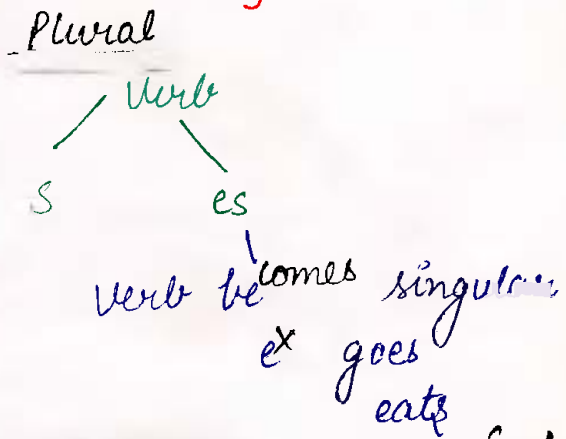 Plural
Verb
s es
verb becomes singular
ex goes
eats